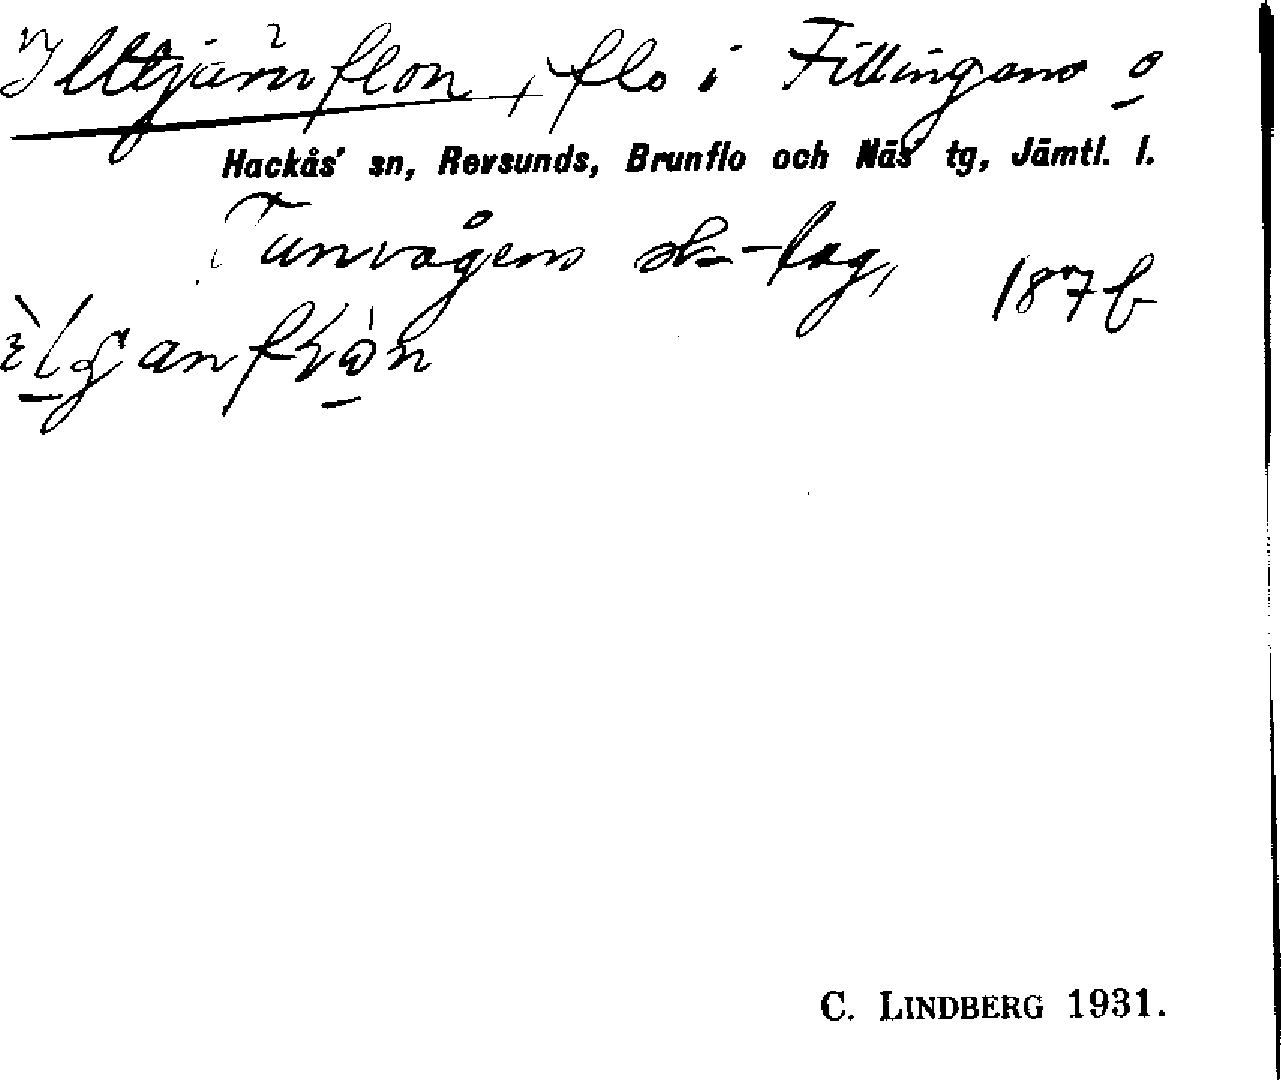 Illtjärnflon, flo i Fillingens o
Hackås' sn, Revsunds, Brunflo och Näs' tg, Jämtl. l.
Tunvågens sk-lag, 187 b
C. LINDBERG 1931.